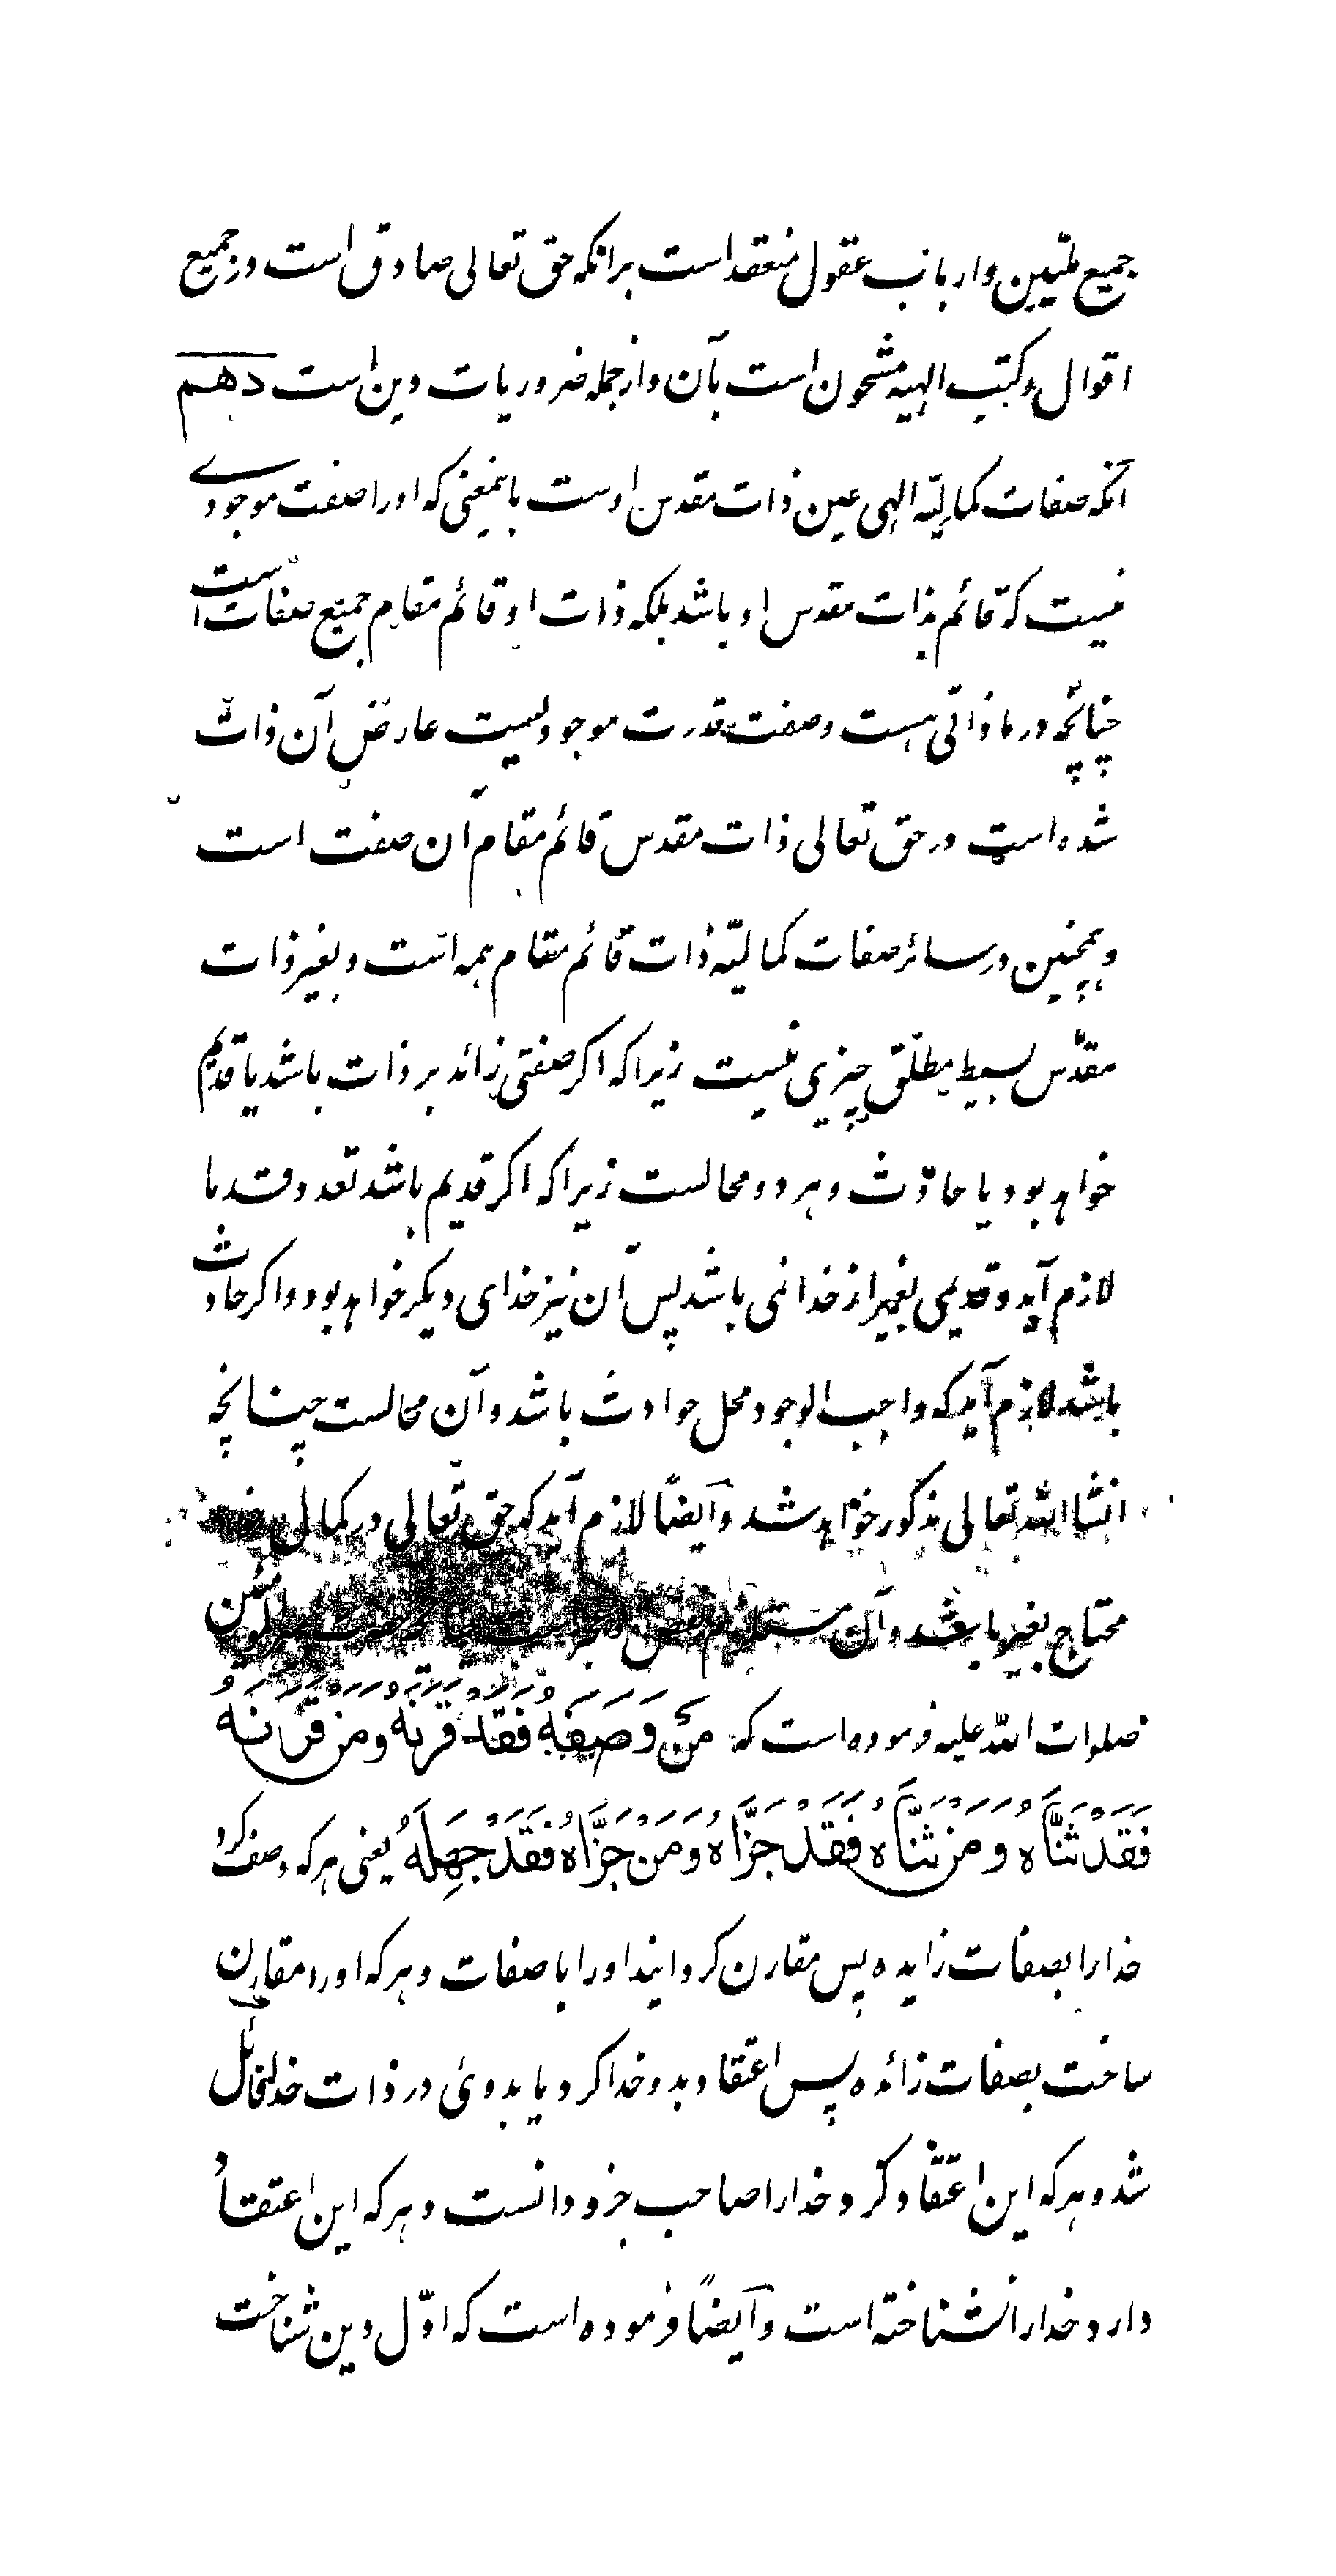 جمیع ملتیین و ارباب عقول منعقد است برانکه حق تعالی صادق است در جمیع
اقوال و کتب الهیه مشحون است بآن و از جمله ضروریات دین است دهم
آنکه صفات کمالیّه الهی عین ذات مقدس اوست باینمعنی که اورا صفت موجودے
نیست که قائم بذات مقدس او باشد بلکه ذات او قائم مقام جمیع صفات است
چنانچه در ما ذاتی هست و صفت قدرت موجود لیست عارض آن ذات
شده است و در حق تعالی ذات مقدس قائم مقام آن صفت است
و همچنین در سائر صفات کمالیّه ذات قائم مقام همه است و بغیر ذات
مقدّس بسیط مطلق چیزی نیست زیرا که اکر صفتی زائد بر ذات باشد یا قدیم
خواهد بود یا حادث و هر دو محالست زیرا که اکر قدیم باشد تعدد قدما
لازم آید و قدیمی بغیر از خدا نمی باشد پس آن نیز خدای دیکر خواهد بود و اکر حادث
باشد لازم آید که واجب الوجود محل حوادث باشد و آن محالست چنانچه
انشاالله تعالی مذکور خواهد شد و آیضاً لازم آید که حق تعالی در کمال خود
محتاج بغیر باشد و آن مستلزم نقص و عجز است چنانچه حضرت امیرالمؤمنین
صلوات الله علیه فرموده است که مَنْ وَصَفَهُ فَقَدْ قَرَنَهُ وَمَنْ قَرَنَهُ
فَقَدْ ثَنَّاهُ وَمَنْ ثَنَّاهُ فَقَدْ جَزَّاهُ وَمَنْ جَزَّاهُ فَقَدْ جَهِلَهُ یعنی هر که وصف کرد
خدارا بصفات زایده پس مقارن کردانیداورا با صفات و هر که اورا مقارن
ساخت بصفات زائده پس اعتقاد بدو خدا کرد یا بدوئی در ذات خدا قائل
شد و هر که این اعتقاد کرد خدارا صاحب جزو دانست و هر که این اعتقاد
دارد خدارا نشناخته است و آیضاً فرموده است که اوّل دین شناخت